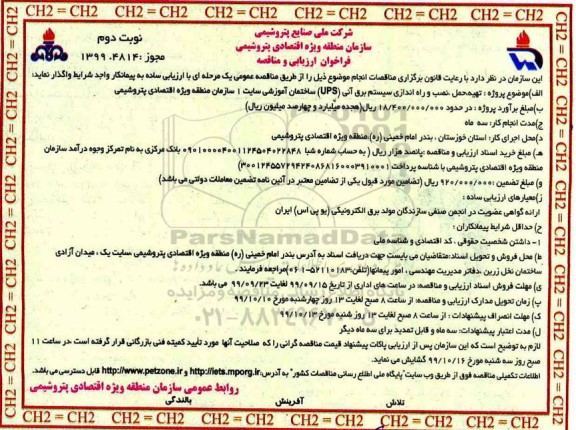 CH2 = CH2 = CH2 = CH2 = CH2 = CH2 = CH2 = CH2
شرکت ملی صنایع پتروشیمی
سازمان منطقه ویژه اقتصادی پتروشیمی
فراخوان ارزیابی و مناقصه
نوبت دوم
مجوز :۱۳۹۹.۴۸۱۴
این سازمان در نظر دارد با رعایت قانون برگزاری مناقصات انجام موضوع ذیل را از طریق مناقصه عمومی یک مرحله ای با ارزیابی ساده به پیمانکار واجد شرایط واگذار نماید:
الف)موضوع پروژه : تهیه،حمل ،نصب و راه اندازی سیستم برق آنی (UPS) ساختمان آموزشی سایت ۱ سازمان منطقه ویژه اقتصادی پتروشیمی
ب)مبلغ برآورد پروژه : در حدود ۱۸/۴۰۰/۰۰۰/۰۰۰ ریال(هجده میلیارد و چهارصد میلیون ریال)
ج)مدت انجام کار: سه ماه
د)محل اجرای کار: استان خوزستان ، بندر امام خمینی (ره)،منطقه ویژه اقتصادی پتروشیمی
هـ) مبلغ خرید اسناد ارزیابی و مناقصه: پانصد هزار ریال ( به حساب شماره شبا بانک مرکزی به نام تمرکز وجوه درآمد سازمان
منطقه ویژه اقتصادی پتروشیمی با شناسه پرداخت
و) مبلغ تضمین :۹۲۰/۰۰۰/۰۰۰ ریال (تضامین مورد قبول یکی از تضامین معتبر در آئین نامه تضمین معاملات دولتی می باشد)
ز)معیارهای ارزیابی ساده :
ارائه گواهی عضویت در انجمن صنفی سازندگان مولد برق الکترونیکی (یو پی اس) ایران
ح)حداقل شرایط پیمانکاران :
۱- داشتن شخصیت حقوقی ، کد اقتصادی و شناسه ملی
ط) محل فروش و تحویل اسناد:متقاضیان می بایست جهت دریافت اسناد به آدرس بندر امام خمینی (ره) منطقه ویژه اقتصادی پتروشیمی ،سایت یک ، میدان آزادی
ساختمان نخل زرین ،دفاتر مدیریت مهندسی ، امور پیمانها(تلفن:۵۲۱۱۰۱۸۳-۰۶۱)مراجعه فرمایند.
ی) مهلت فروش اسناد ارزیابی و مناقصه: در ساعت های اداری از تاریخ ۹۹/۰۹/۱۵ لغایت ۹۹/۰۹/۲۳ می باشد.
پ) زمان تحویل مدارک ارزیابی و مناقصه: از ساعت ۸ صبح لغایت ۱۳ روز چهارشنبه مورخ ۹۹/۱۰/۱۰
ک) مهلت انصراف پیشنهادات : از ساعت ۸ صبح لغایت ۱۳ روز شنبه مورخ ۹۹/۱۰/۱۳
ل) مدت اعتبار پیشنهادات: سه ماه و قابل تمدید برای سه ماه دیگر
لازم به توضیح است که این سازمان پس از ارزیابی پاکات پیشنهاد قیمت مناقصه گرانی را که صلاحیت آنها مورد تأیید کمیته فنی بازرگانی قرار گرفته است ،در ساعت ۱۱
صبح روز سه شنبه مورخ ۹۹/۱۰/۱۶ گشایش می نماید.
اطلاعات تکمیلی مناقصه فوق از طریق وب سایت"پایگاه ملی اطلاع رسانی مناقصات کشور" به آدرس:http://iets.mporg.ir و http://www.petzone.ir قابل دسترسی می باشد.
روابط عمومی سازمان منطقه ویژه اقتصادی پتروشیمی
تلاش آفرینش بالندگی
CH2 = CH2 = CH2 = CH2 = CH2 = CH2 = CH2 = CH2
ParsNamadData